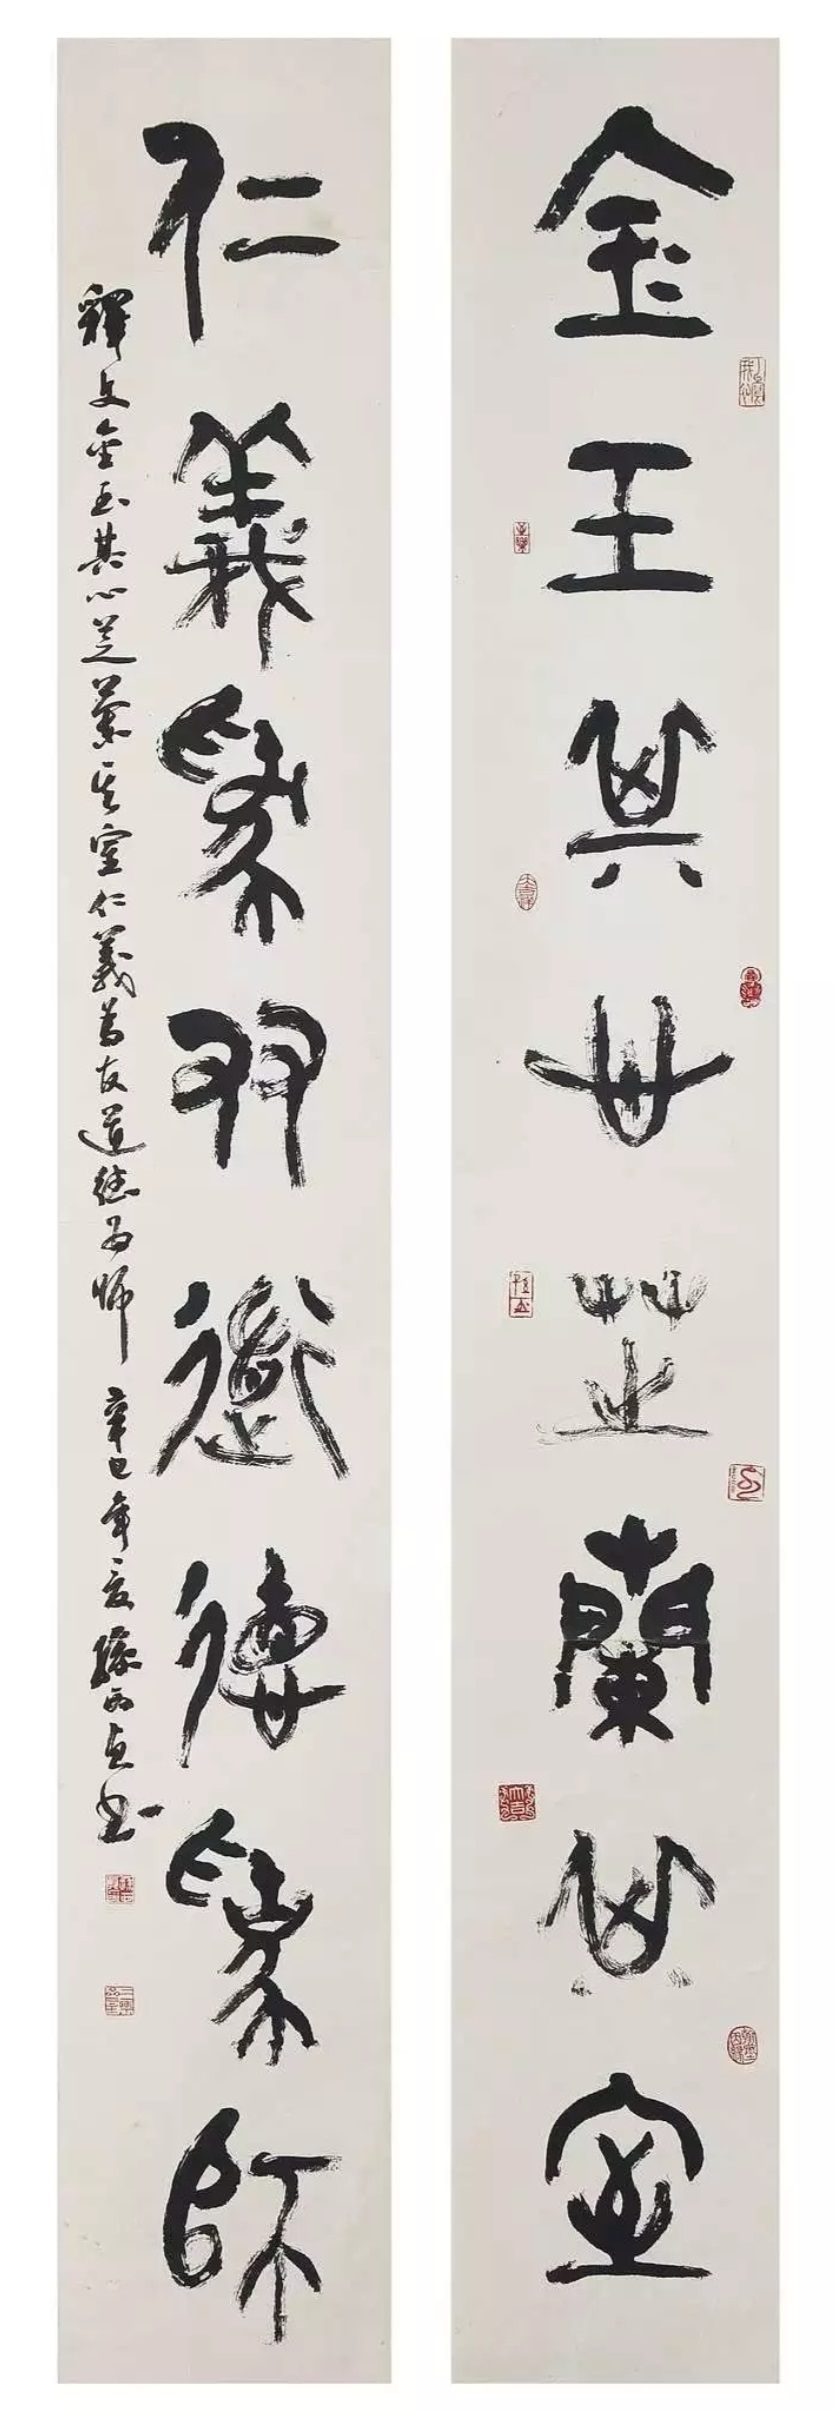 金玉其心芝蘭其室
仁義為友道德為師
釋文金玉其心芝蘭其室仁義為友道德為師 辛巳年夏 書